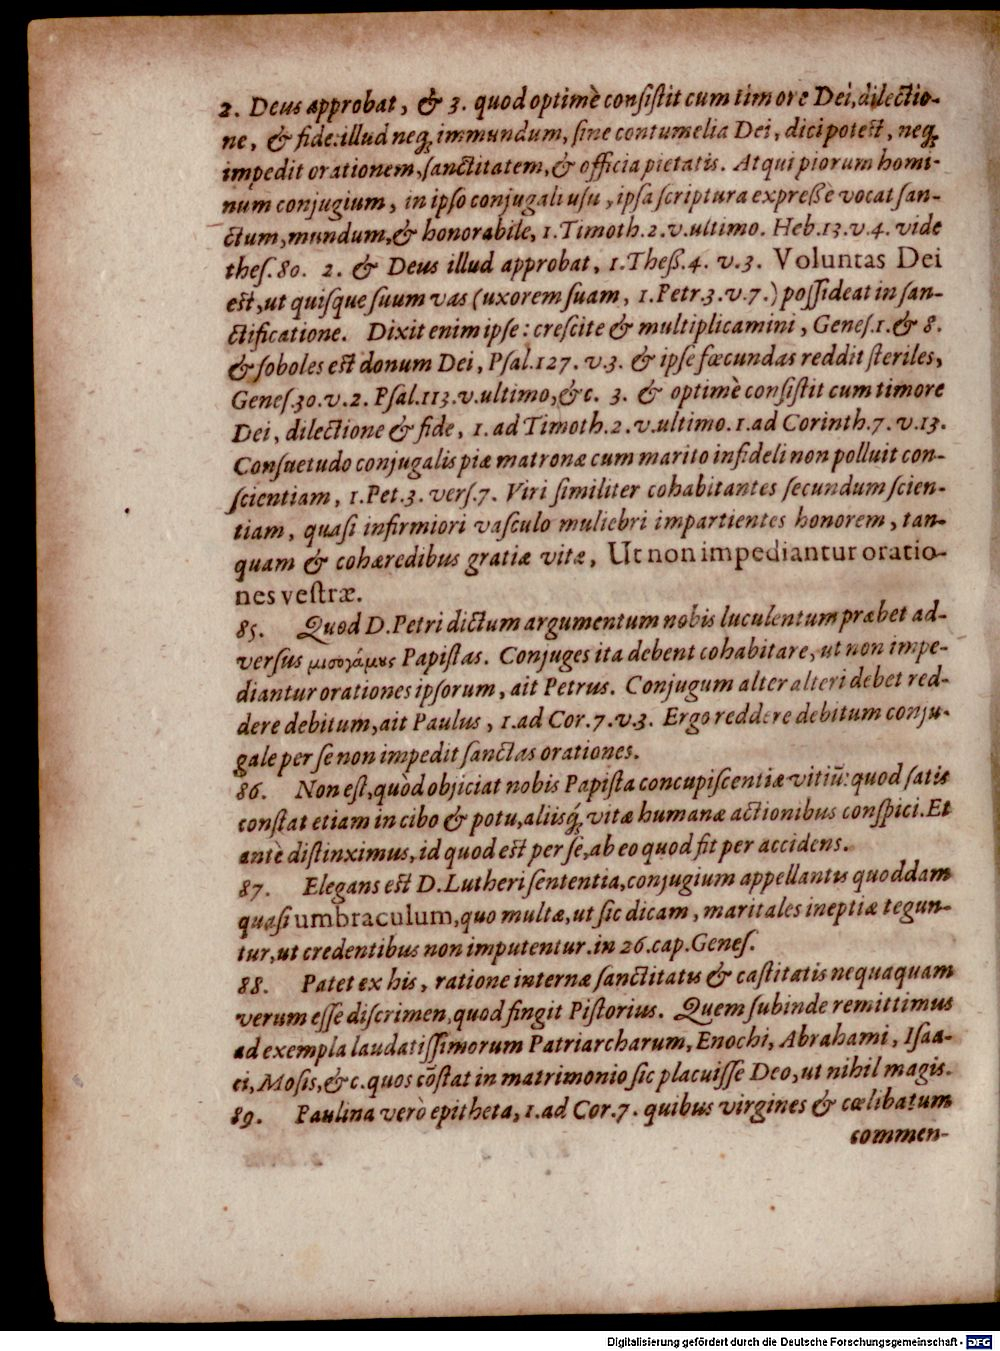 2. Deus approbat, & 3. quod optimè conſiſtit cum timore Dei, dilectio-
ne, & fide: illud neq́; immundum, ſine contumelia Dei, dici poteſt, neq́;
impedit orationem, ſanctitatem, & officia pietatis. Atqui piorum homi-
num conjugium, in ipſo conjugali uſu, ipſa ſcriptura expreßè vocat ſan-
ctum, mundum, & honorabile, 1. Timoth. 2. v. ultimo. Heb. 13. v. 4. vide
theſ. 80. 2. & Deus illud approbat, 1. Theß. 4. v. 3. Voluntas Dei
eſt, ut quiſque ſuum vas (uxorem ſuam, 1. Petr. 3. v. 7.) poſſideat in ſan-
ctificatione. Dixit enim ipſe: creſcite & multiplicamini, Geneſ. 1. & 8.
& ſoboles eſt donum Dei, Pſal. 127. v. 3. & ipſe fœcundas reddit ſteriles,
Geneſ. 30. v. 2. Pſal. 113. v. ultimo, &c. 3. & optimè conſiſtit cum timore
Dei, dilectione & fide, 1. ad Timoth. 2. v. ultimo. 1. ad Corinth. 7. v. 13.
Conſuetudo conjugalis piæ matronæ cum marito infideli non polluit con-
ſcientiam, 1. Pet. 3. verſ. 7. Viri ſimiliter cohabitantes ſecundum ſcien-
tiam, quaſi infirmiori vaſculo muliebri impartientes honorem, tan-
quam & cohæredibus gratiæ vitæ, Ut non impediantur oratio-
nes veſtræ.
85. Quod D. Petri dictum argumentum nobis luculentum præbet ad-
verſus μισογάμους Papiſtas. Conjuges ita debent cohabitare, ut non impe-
diantur orationes ipſorum, ait Petrus. Conjugum alter alteri debet red-
dere debitum, ait Paulus, 1. ad Cor. 7. v. 3. Ergo reddere debitum conju-
gale per ſe non impedit ſanctas orationes.
86. Non eſt, quòd objiciat nobis Papiſta concupiſcentiæ vitiũ: quod ſatis
conſtat etiam in cibo & potu, aliisq́; vitæ humanæ actionibus conſpici. Et
antè diſtinximus, id quod eſt per ſe, ab eo quod fit per accidens.
87. Elegans eſt D. Lutheri ſententia, conjugium appellantis quoddam
quaſi umbraculum, quo multæ, ut ſic dicam, maritales ineptiæ tegun-
tur, ut credentibus non imputentur. in 26. cap. Geneſ.
88. Patet ex his, ratione internæ ſanctitatis & caſtitatis nequaquam
verum eſſe diſcrimen, quod fingit Piſtorius. Quem ſubinde remittimus
ad exempla laudatiſſimorum Patriarcharum, Enochi, Abrahami, Iſaa-
ci, Moſis, &c. quos cõſtat in matrimonio ſic placuiſſe Deo, ut nihil magis.
89. Paulina verò epitheta, 1. ad Cor. 7. quibus virgines & cœlibatum
commen-
Digitalisierung gefördert durch die Deutsche Forschungsgemeinschaft - DFG